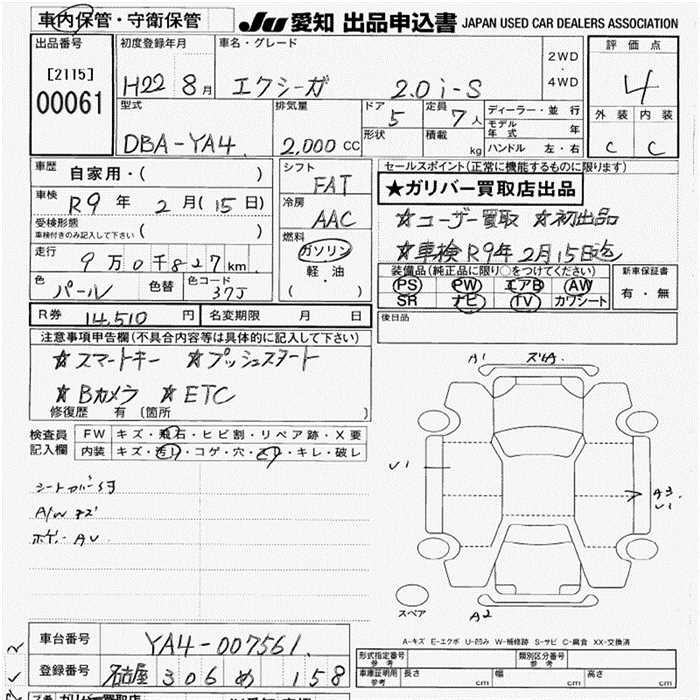 車内保管・守衛保管
JU 愛知 出品申込書 JAPAN USED CAR DEALERS ASSOCIATION
出品番号 初度登録年月 車名・グレード 2WD ・ 4WD 評価点
[2115] H22 8月 エクシーガ 2.0i-S 4
00061
型式 排気量 ドア 5 定員 7人 ディーラー・並行 外装 内装
DBA-YA4. 2,000 CC 形状 積載 kg モデル年式 年 C C
ハンドル 左・右
車歴 自家用・( ) シフト FAT セールスポイント(正常に機能するものに限ります)
★ガリバー買取店出品
車検 R9年 2月(15日) 冷房 AAC ☆ユーザー買取 ☆初出品
受検形態 車検付きのみ記入して下さい ( ) ☆車検R9年2月15日迄
燃料 ガソリン 軽・油 ( )
走行 9万0千827km 装備品(純正品に限り○をつけてください) 新車保証書
色 パール 色替 色コード 37J PS PW エアB AW 有・無
SR ナビ TV カワシート
R券 14,510円 名変期限 月 日 後日品
注意事項申告欄(不具合内容等は具体的に記入して下さい)
☆スマートキー ☆プッシュスタート
☆Bカメラ ☆ETC
修復歴 有 (箇所 )
検査員記入欄 FW キズ・飛石・ヒビ割・リペア跡・X要
内装 キズ・汚れ・コゲ・穴・スリ・キレ・破レ
A1
U1
A3
U1
A/W キズ
スペア
A2
A-キズ E-エクボ U-凹み W-補修跡 S-サビ C-腐食 XX-交換済
車台番号 YA4-007561.
登録番号 名古屋 306 め 158
形式指定番号 参考 類別区分番号 参考
車庫証明用 参考 長さ cm 幅 cm 高さ cm